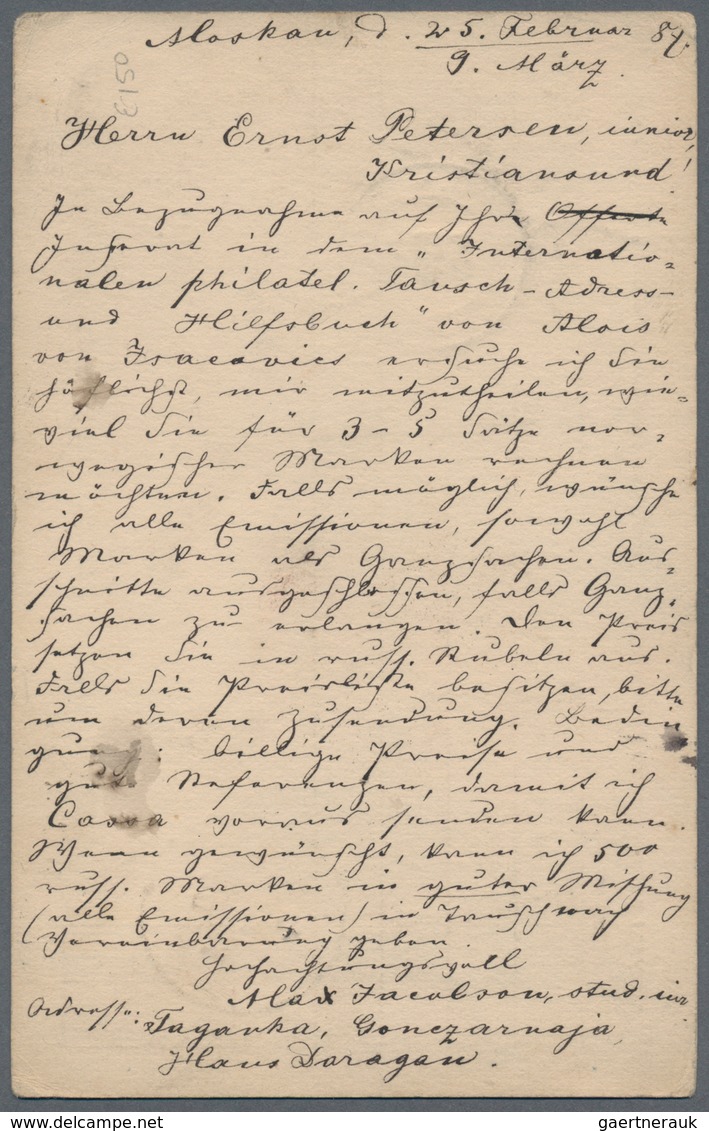 Moskau, d. 25. Februar 87.
9. März
£150
Herrn Ernst Petersen, junior,
Kristiansund!
In Bezugnahme auf Ihr Offerte
Inserat in dem „Internatio-
nalen philatel. Tausch-Adress-
und Hilfsbuch" von Alois
von Isacovics ersuche ich Sie
höflichst, mir mitzutheilen, wie-
viel Sie für 3-5 Sätze nor-
wegischer Marken rechnen
möchten. Falls möglich, wünsche
ich alle Emissionen, sowohl
Marken als Ganzsachen. Aus-
schnitte ausgeschlossen, falls Ganz-
sachen zu erlangen. Den Preis
setzen Sie in russ. Rubeln aus.
Falls Sie Preisliste besitzen, bitte
um deren Zusendung. Bedin
gun : billige Preise und
gute Referenzen, damit ich
Cassa voraus senden kann.
Wenn gewünscht, kann ich 500
russ. Marken in guter Mischung
(alle Emissionen) in Tausch nach
Vereinbarung geben.
Hochachtungsvoll
Max Jacobson, stud. iur.
Adresse: Taganka, Gonczarnaja,
Haus Daragan.
gaertnerauk